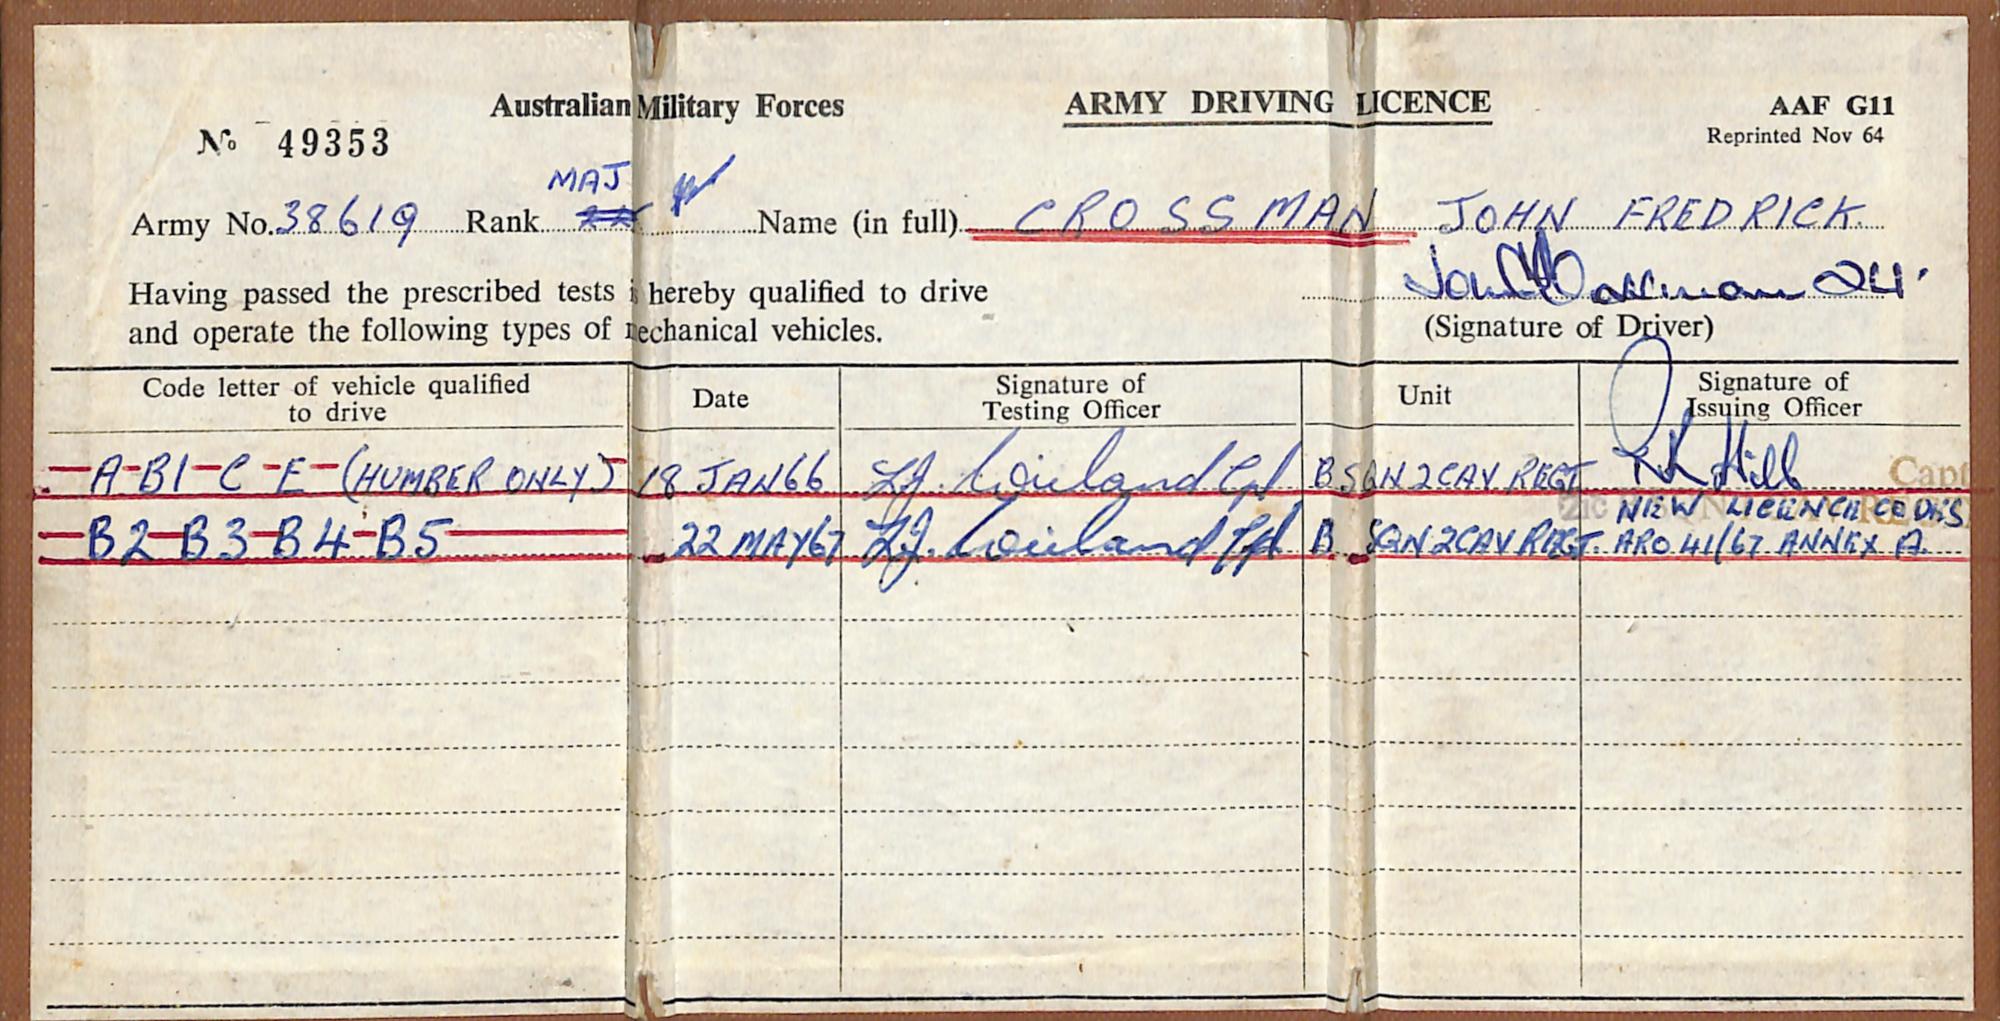 Australian Military Forces ARMY DRIVING LICENCE AAF G11
Reprinted Nov 64
No 49353
MAJ
Army No. 38619 Rank Name (in full) CROSSMAN JOHN FREDRICK.
Having passed the prescribed tests is hereby qualified to drive
and operate the following types of mechanical vehicles.
(Signature of Driver)
Code letter of vehicle qualified to drive Date Signature of Testing Officer Unit Signature of Issuing Officer
A-B1-C-E-(HUMBER ONLY) 18 JAN66 Cpl B SQN 2CAV REGT Hill Capt
NEW LICENCE CODES
B2 B3 B4-B5 22 MAY67 B SQN 2CAV REGT. ARO 41/67 ANNEX A.